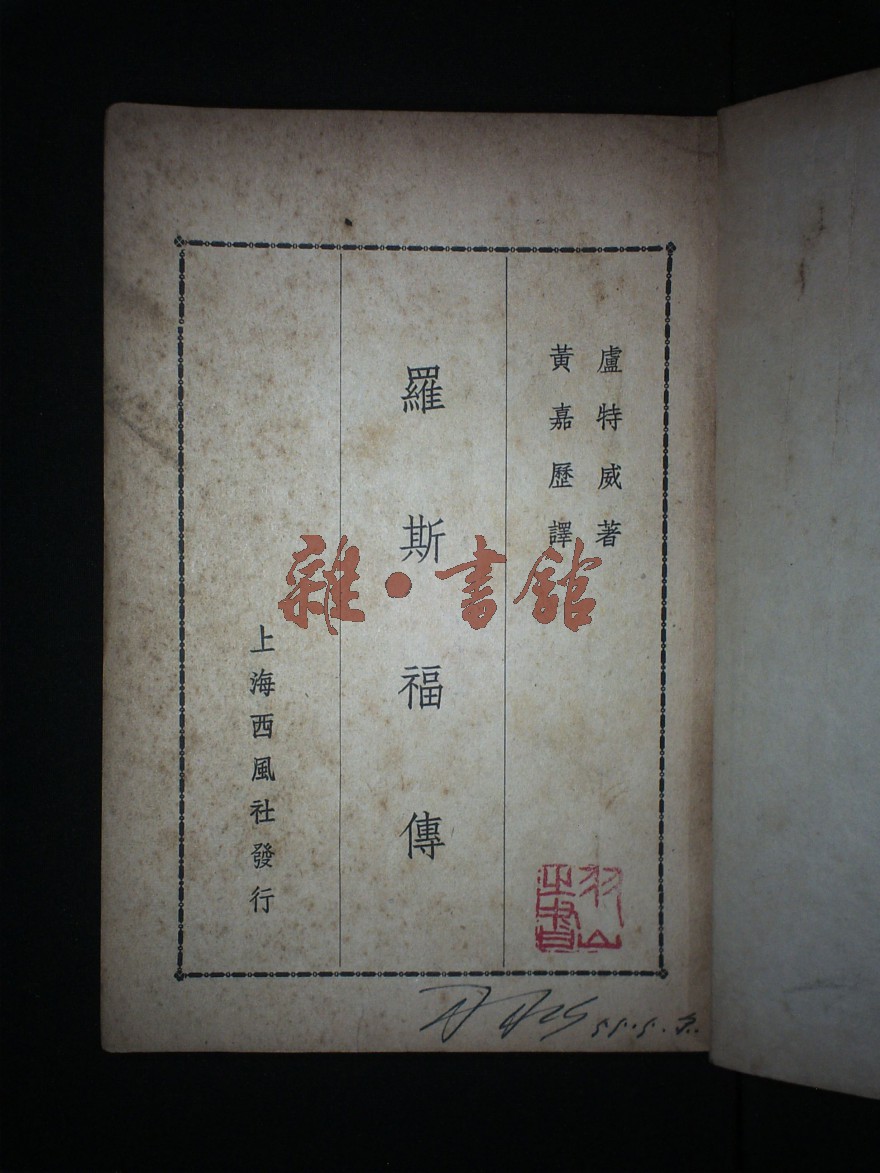 盧特威著
黃嘉歷譯
羅斯福傳
上海西風社發行
雜·書館
羽山
之書